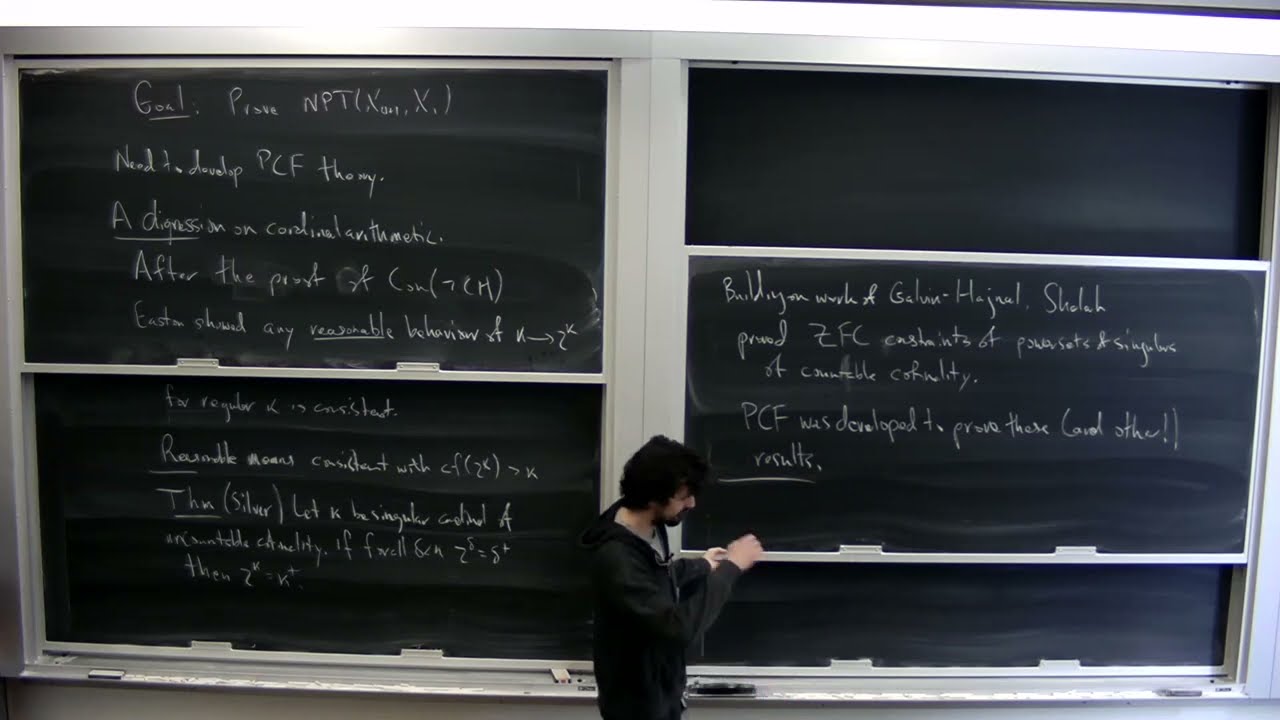 Goal: Prove NPT(ℵω+1, ℵ1)
Need to develop PCF theory.
A digression on cardinal arithmetic.
After the proof of Con(¬CH)
Easton showed any reasonable behaviour of κ→2^κ
for regular κ is consistent.
Reasonable means consistent with cf(2^κ) > κ
Thm (Silver) Let κ be singular cardinal of
uncountable cofinality. If for all δ<κ 2^δ=δ⁺
then 2^κ=κ⁺.
Building on work of Galvin-Hajnal, Shelah
proved ZFC constraints of powersets of singulars
of countable cofinality.
PCF was developed to prove these (and other!)
results.